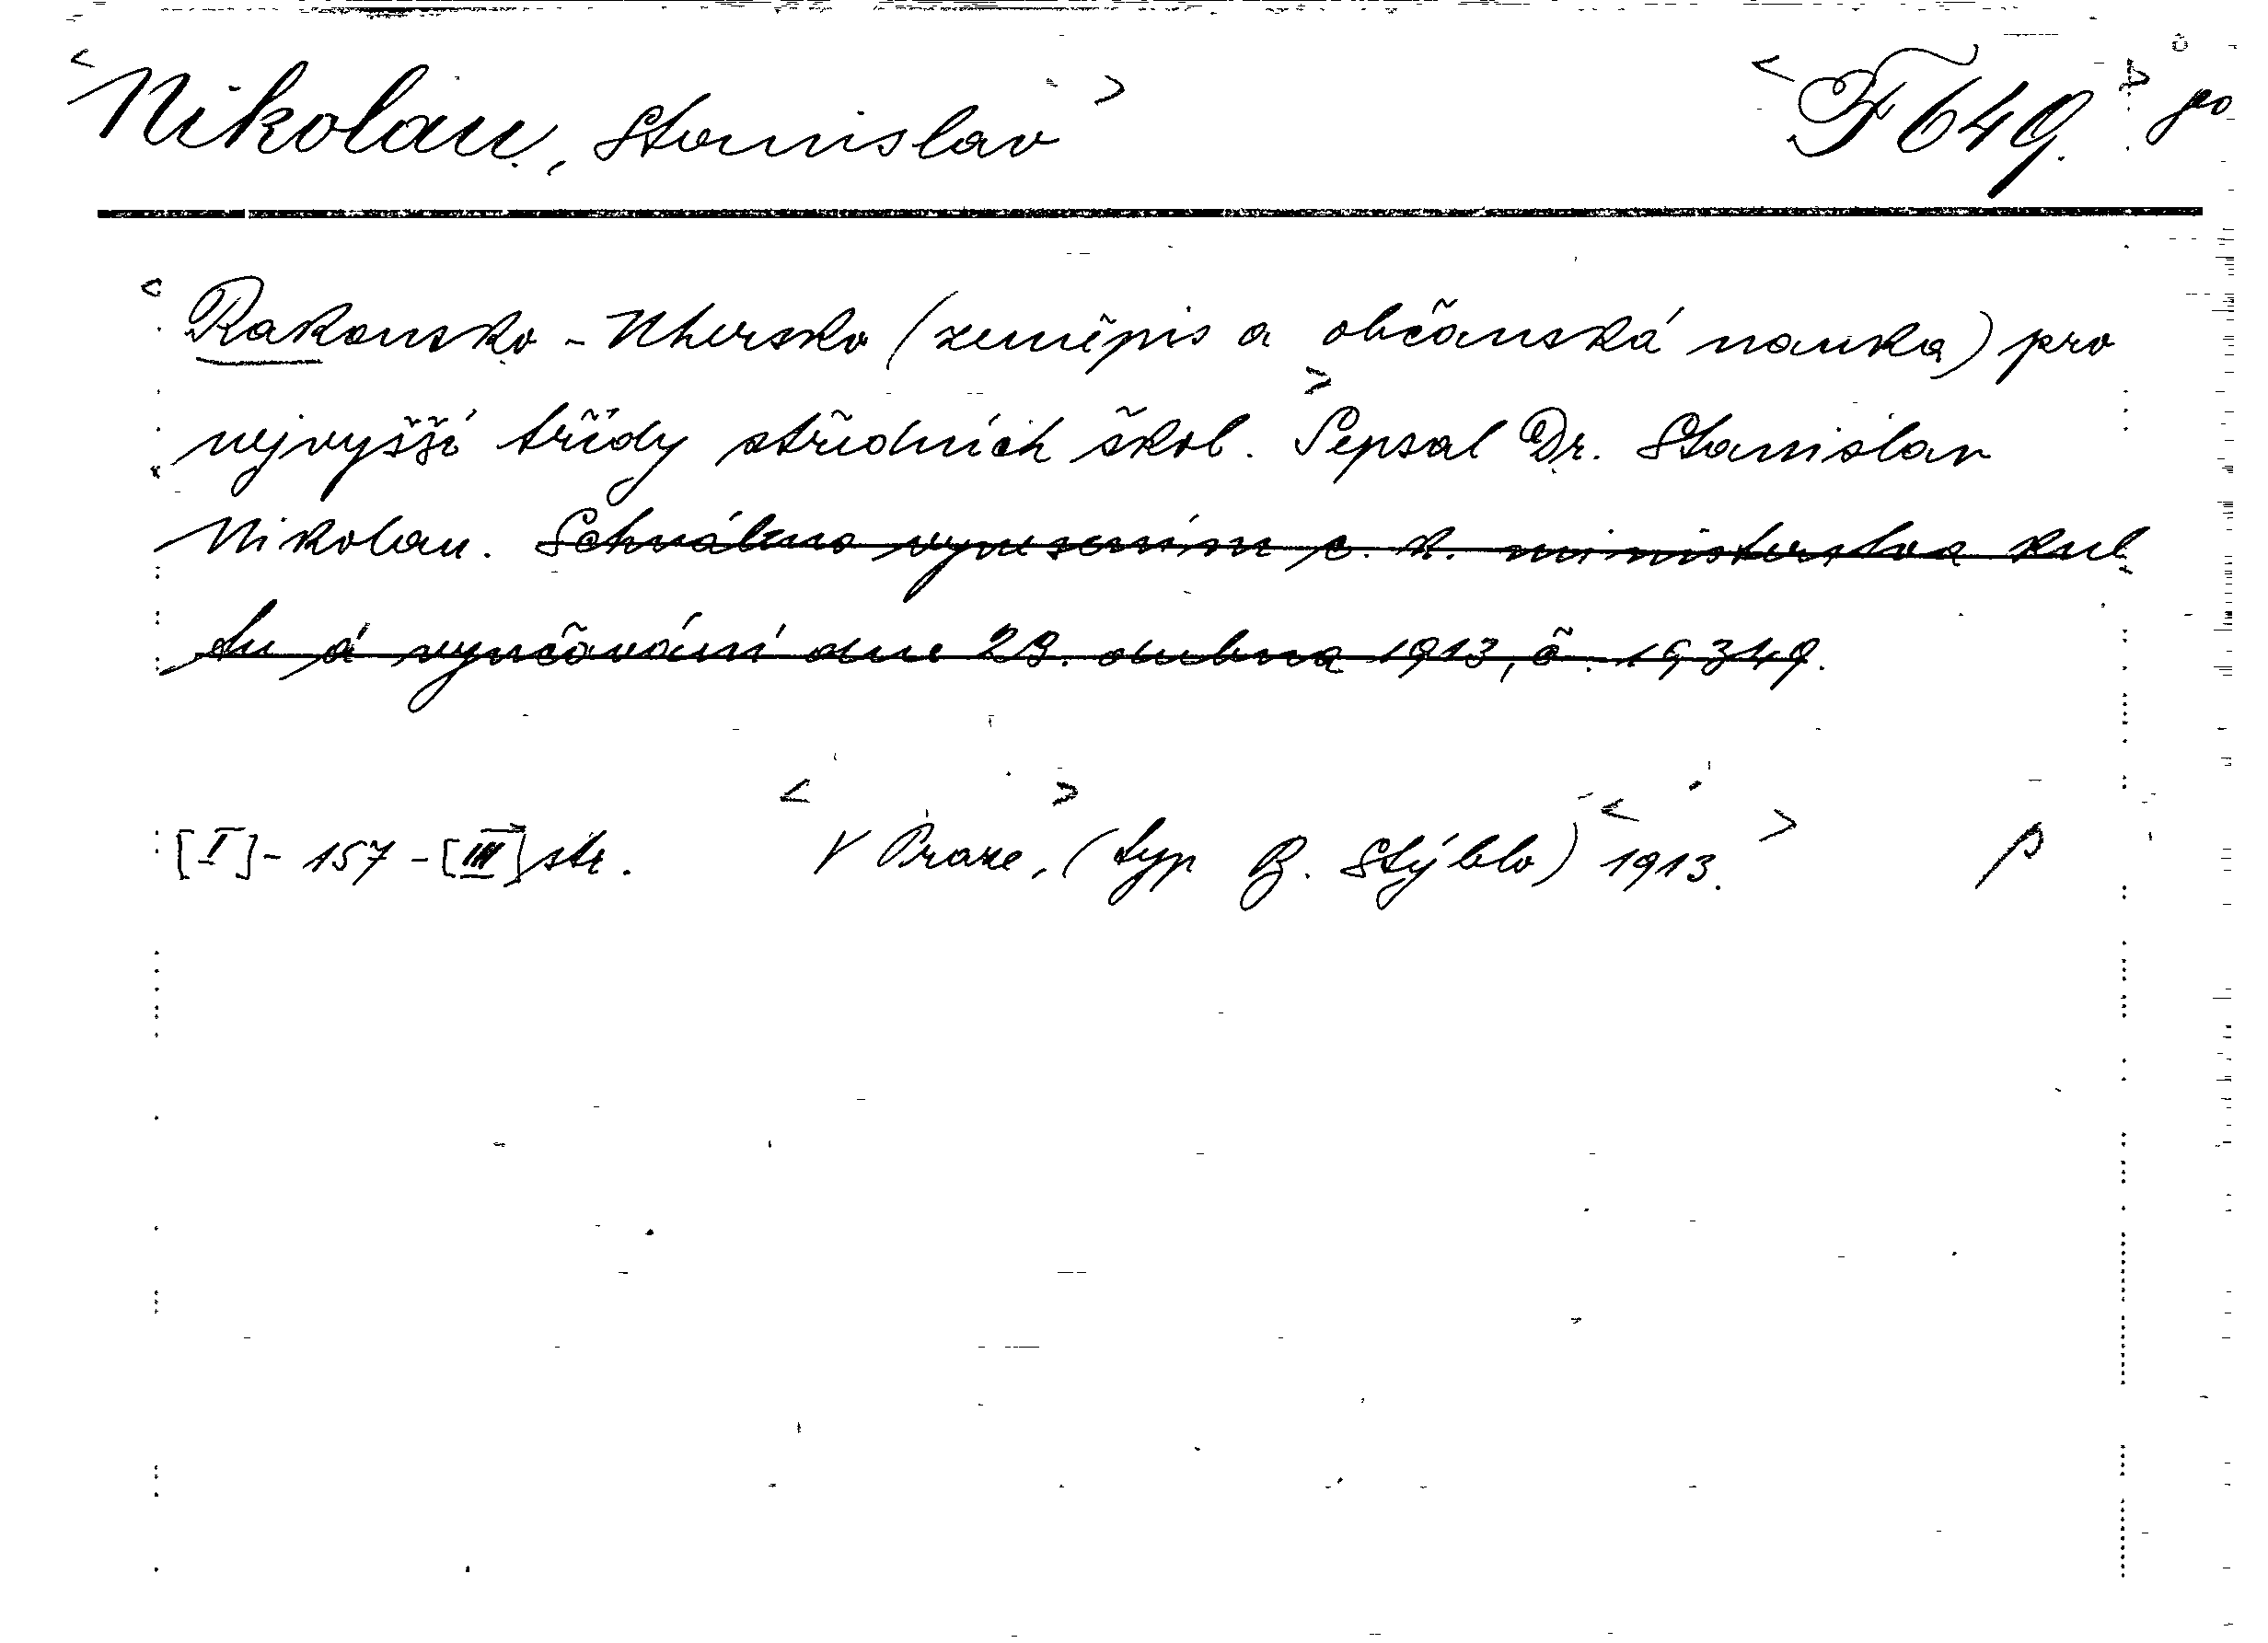 <Nikolau, Stanislav> <F 649.> geo
<Rakousko - Uhersko (zeměpis a občanská nauka) pro
nejvyšší třídy středních škol.> Sepsal Dr. Stanislav
Nikolau. Schváleno vynesením c. k. ministerstva kul
tu a vyučování dne 23. dubna 1913, č. 19349.
[I] - 157 - [III] str. V <Praze>, (typ B. Stýblo) <1913.>